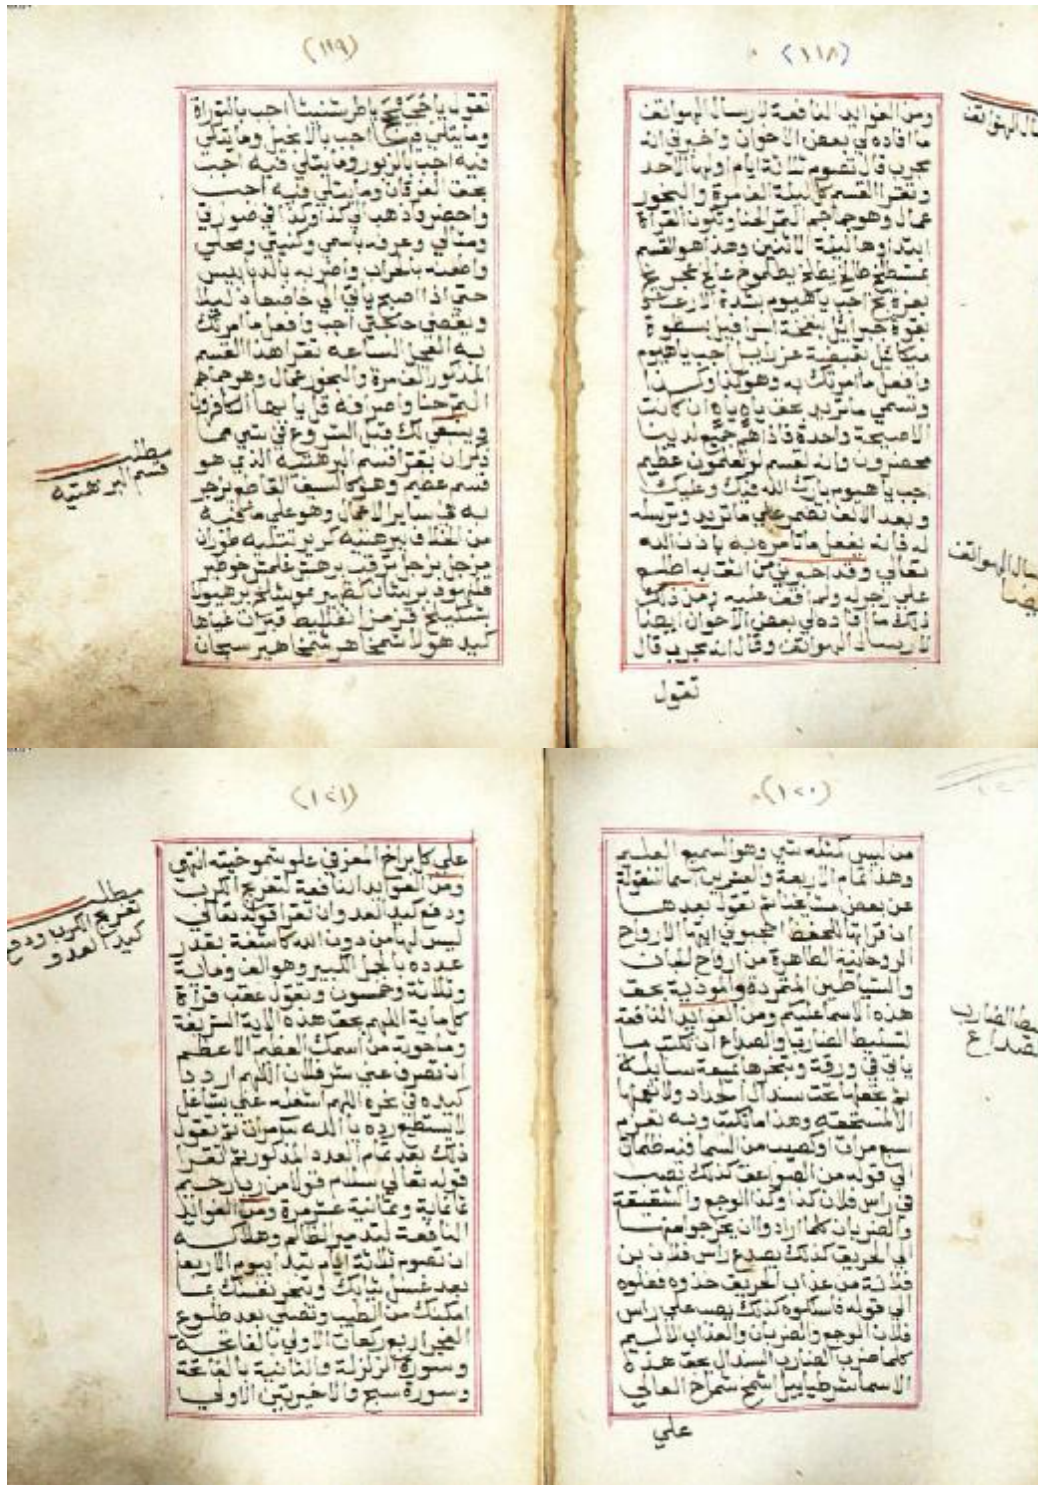 (١١٨)
ومن الفوايد النافعة لارسال الهواتف
ما افاده لي بعض الاخوان واخبرني انه
مجرب قال تصوم ثلاثة ايام اولها الاحد
وتقرا القسم كل ليلة الف مرة والبخور
عمال وهو جماجم التمر حنا وتكون القراة
ابتداوها ليلة الاثنين وهذا هو القسم
اجب يا هيوم بشدة
بقوة جبرائيل بنفخة اسرافيل بسطوة
ميكائيل بقبضة عزرائيل اجب يا هيوم
وافعل ما امرتك به وهو كذا وكذا
وتسمي ما تريد بحق ياه ياه ان كانت
الا صيحة واحدة فاذا هم جميع لدينا
محضرون وانه لقسم لو تعلمون عظيم
اجب يا هيوم بارك الله فيك وعليك
وبعد الالف تضمر علي ما تريد وترسله
له فانه يفعل ما تامره به باذن الله
تعالي وقد اخبرني من اثق به
ذلك ما افاده لي بعض الاخوان ايضا
لارسال الهواتف وقال انه مجرب قال
تقول
(١١٩)
اجب بالتوراة
وما يتلي فيها اجب بالانجيل وما يتلي
فيه اجب بالزبور وما يتلي فيه اجب
بحق الفرقان وما يتلي فيه اجب
واحضر واذهب الي كذا وكذا في صورتي
ومثالي وعرفه باسمي وكنيتي ومحلي
واطعنه بالحراب واضربه بالدبابيس
حتي اذا اصبح ياتي الي خاضعا ذليلا
ويقضي حاجتي اجب وافعل ما امرتك
به العجل الساعه تقرا هذا القسم
المذكور الف مرة والبخور عمال وهو جماجم
التمر حنا واصرفه قل يا ايها الكافرون
وينبغي لك قبل الشروع في شي مما
ذكر ان تقرا قسم البرهتيه الذي هو
قسم عظيم وهو كالسيف القاطع تزجر
به في ساير الاعمال وهو علي ما فيه
من الخلاف برهتيه كرير تتليه طوران
مزجل بزجل ترقب برهش غلمش خوطير
قلنهود برشان كظهير نموشلخ برهيولا
بشكيلخ قزمز انغلليط قبرات غياها
كيدهولا شمخاهر شمخاهير
مطلب
قسم البرهتيه
(١٢٠)
من ليس كمثله شي وهو السميع العليم
وهذا تمام الاربعة والعشرين اسما المنقولة
عن بعض مشايخنا ثم تقول بعدها
ان قراتها للحفظ احجبوني ايتها الارواح
الروحانية الطاهرة من ارواح الجان
والشياطين المتمردة والموذية بحق
هذه الاسما عليكم ومن الفوايد النافعة
لتسليط الضارب والصداع ان تكتب ما
ياتي في ورقة وتبخرها بميعة سايلة
ثم تجعلها تحت سندال الحداد ولا تعملها
الا لمستحقه وهذا ما تكتب وبه تعزم
سبع مرات او كصيب من السما فيه ظلمات
الي قوله من الصواعق كذلك تصب
في راس فلان كذا وكذا الوجع والشقيقة
والضربان كلما ارادوا ان يخرجوا منها
الي الحريق كذلك يصدع راس فلان بن
فلانة من عذاب الحريق خذوه فغلوه
الي قوله فاسلكوه كذلك يصب علي راس
فلان الوجع والضربان والعذاب الاليم
كلما ضرب الضارب السندال بحق هذه
الاسما اشمخ شماخ العالي
علي
(١٢١)
علي كل براخ المعز في علو شموخيته انتهي
ومن الفوايد النافعة لتفريج الكرب
ودفع كيد العدو ان تقرا قوله تعالي
ليس لها من دون الله كاشفة بقدر
عدده بالجمل الكبير وهو الف وماية
وثلاثة وخمسون وتقول عقب قراة
كل ماية اللهم بحق هذه الاية الشريفة
وما حوته من اسمك العظيم الاعظم
ان تصرف عني شر فلان اللهم اردد
كيده في نحره اللهم اشغله عني بشاغل
لا يستطيع رده
ذلك بعد تمام العدد المذكور ثم تقرا
قوله تعالي سلام قولا من رب رحيم
ثمانماية وثمانية عشر مرة ومن الفوايد
النافعة لتدمير الظالم وهلاكه
ان تصوم ثلاثة ايام تبتدا بيوم الاربعا
بعد غسل ثيابك وتبخر نفسك بما
امكنك من الطيب وتصلي بعد طلوع
الفجر اربع ركعات الاولي بالفاتحة
وسورة الزلزلة والثانية بالفاتحة
وسورة سبح والاخيرتين الاولي
مطلب
تفريج الكرب ودفع
كيد العدو